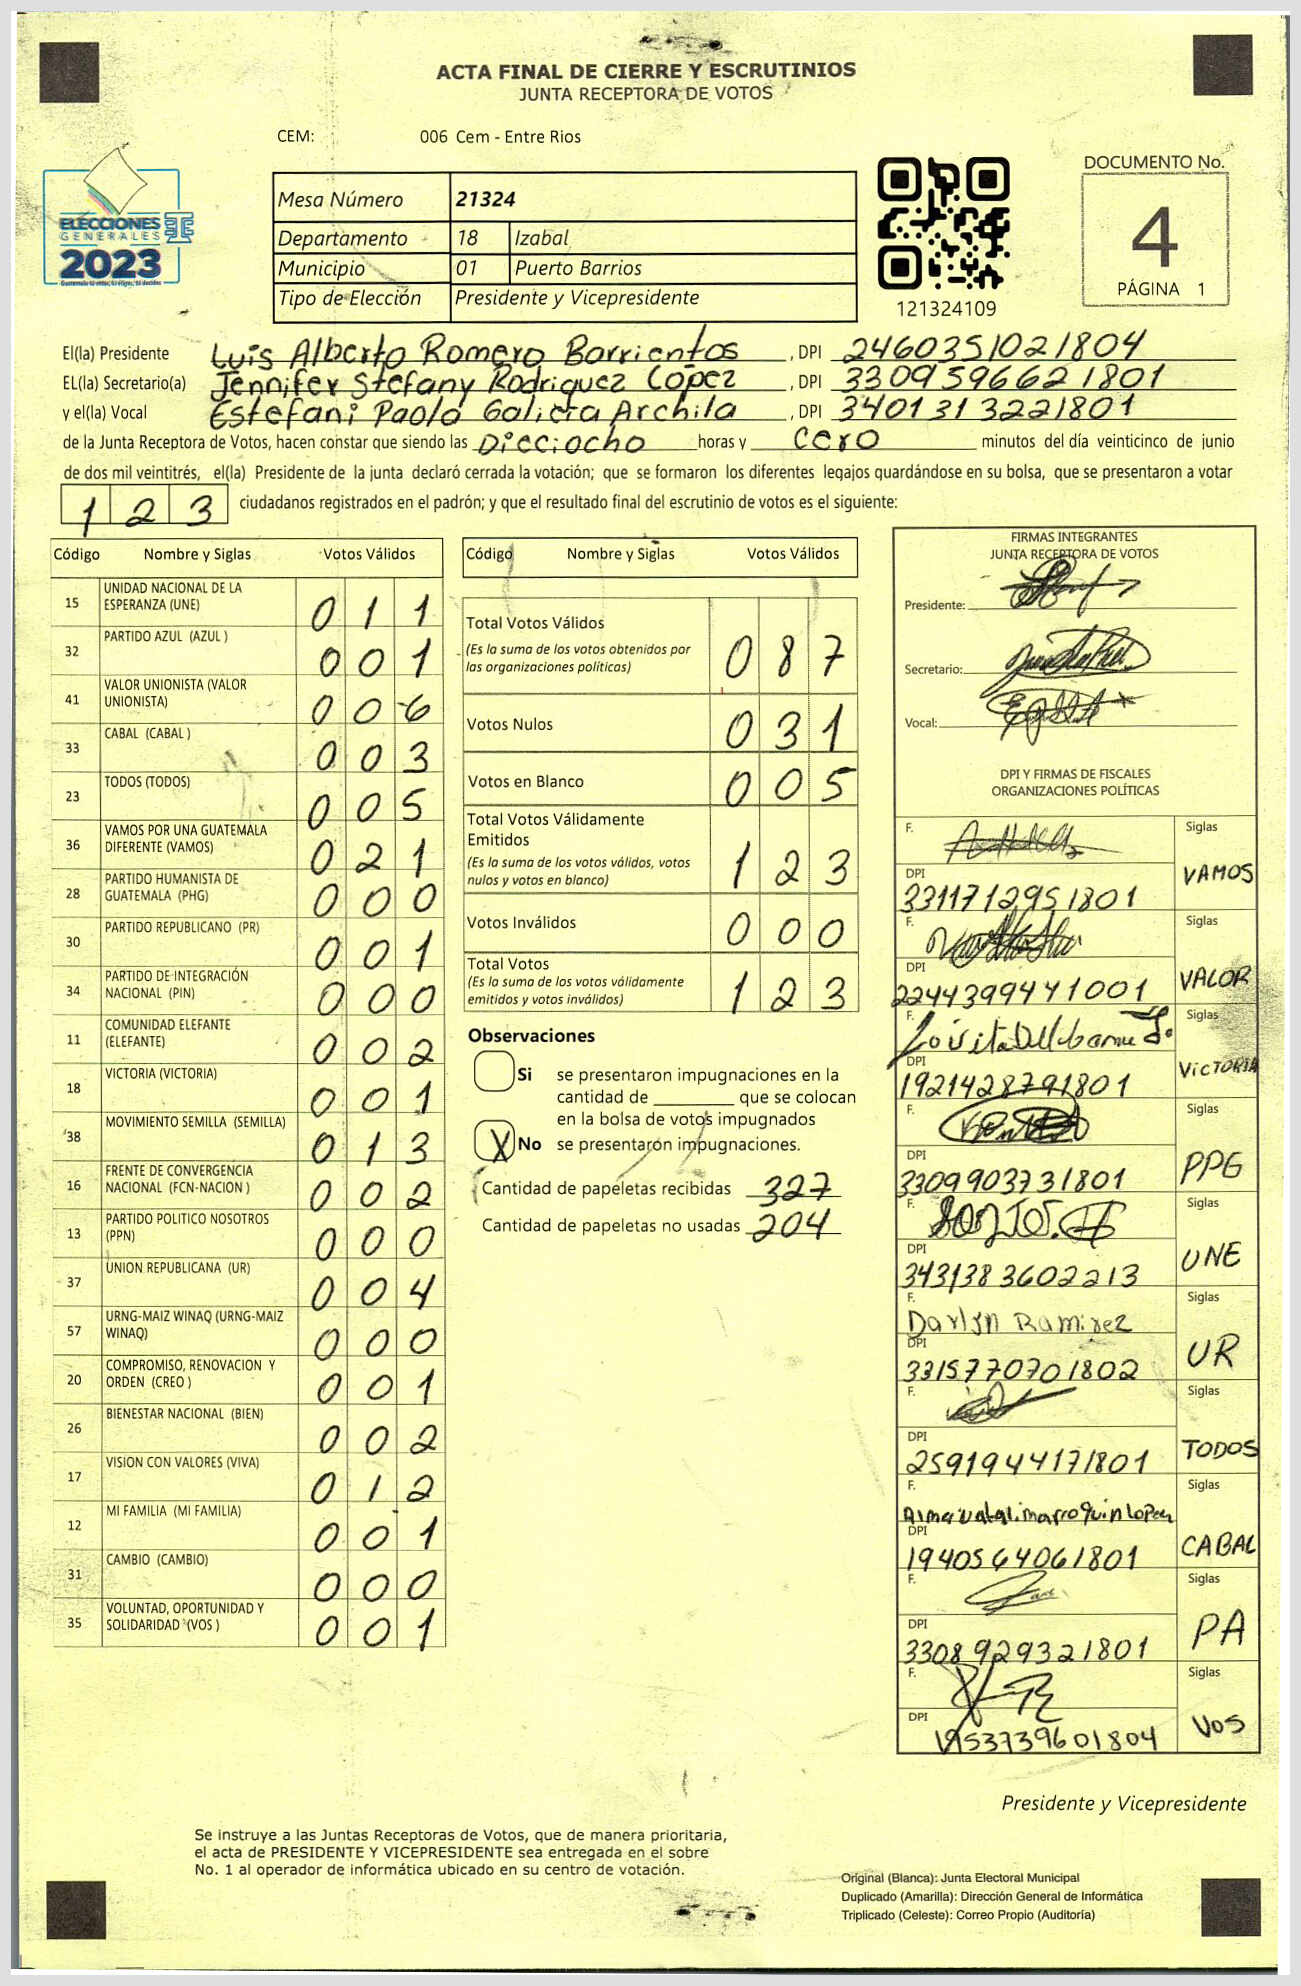 ACTA FINAL DE CIERRE Y ESCRUTINIOS
JUNTA RECEPTORA DE VOTOS
CEM: 006 Cem - Entre Rios
ELECCIONES
GENERALES
2023
Mesa Número 21324
Departamento 18 Izabal
Municipio 01 Puerto Barrios
Tipo de Elección Presidente y Vicepresidente
121324109
DOCUMENTO No.
4
PÁGINA 1
El(la) Presidente Luis Alberto Romero Barrientos, DPI 2460351021804
EL(la) Secretario(a) Jennifer Stefany Rodriguez López, DPI 3309596621801
y el(la) Vocal Estefani Paola Galicia Archila, DPI 3401313221801
de la Junta Receptora de Votos, hacen constar que siendo las Dieciocho horas y cero minutos del día veinticinco de junio
de dos mil veintitrés, el(la) Presidente de la junta declaró cerrada la votación; que se formaron los diferentes legajos guardándose en su bolsa, que se presentaron a votar
1 2 3 ciudadanos registrados en el padrón; y que el resultado final del escrutinio de votos es el siguiente:
Código Nombre y Siglas Votos Válidos
15 UNIDAD NACIONAL DE LA ESPERANZA (UNE) 0 1 1
32 PARTIDO AZUL (AZUL ) 0 0 1
41 VALOR UNIONISTA (VALOR UNIONISTA) 0 0 6
33 CABAL (CABAL ) 0 0 3
23 TODOS (TODOS) 0 0 5
36 VAMOS POR UNA GUATEMALA DIFERENTE (VAMOS) 0 2 1
28 PARTIDO HUMANISTA DE GUATEMALA (PHG) 0 0 0
30 PARTIDO REPUBLICANO (PR) 0 0 1
34 PARTIDO DE INTEGRACIÓN NACIONAL (PIN) 0 0 0
11 COMUNIDAD ELEFANTE (ELEFANTE) 0 0 2
18 VICTORIA (VICTORIA) 0 0 1
38 MOVIMIENTO SEMILLA (SEMILLA) 0 1 3
16 FRENTE DE CONVERGENCIA NACIONAL (FCN-NACION ) 0 0 2
13 PARTIDO POLITICO NOSOTROS (PPN) 0 0 0
37 UNION REPUBLICANA (UR) 0 0 4
57 URNG-MAIZ WINAQ (URNG-MAIZ WINAQ) 0 0 0
20 COMPROMISO, RENOVACION Y ORDEN (CREO ) 0 0 1
26 BIENESTAR NACIONAL (BIEN) 0 0 2
17 VISION CON VALORES (VIVA) 0 1 2
12 MI FAMILIA (MI FAMILIA) 0 0 1
31 CAMBIO (CAMBIO) 0 0 0
35 VOLUNTAD, OPORTUNIDAD Y SOLIDARIDAD (VOS ) 0 0 1
Código Nombre y Siglas Votos Válidos
Total Votos Válidos 0 8 7
(Es la suma de los votos obtenidos por
las organizaciones políticas)
Votos Nulos 0 3 1
Votos en Blanco 0 0 5
Total Votos Válidamente
Emitidos 1 2 3
(Es la suma de los votos válidos, votos
nulos y votos en blanco)
Votos Inválidos 0 0 0
Total Votos 1 2 3
(Es la suma de los votos válidamente
emitidos y votos inválidos)
Observaciones
Si se presentaron impugnaciones en la
cantidad de ________ que se colocan
en la bolsa de votos impugnados
X No se presentaron impugnaciones.
Cantidad de papeletas recibidas 327
Cantidad de papeletas no usadas 204
FIRMAS INTEGRANTES
JUNTA RECEPTORA DE VOTOS
Presidente:
Secretario:
Vocal:
DPI Y FIRMAS DE FISCALES
ORGANIZACIONES POLÍTICAS
F. Siglas
DPI 3311712951801 VAMOS
F. Siglas
DPI 2244399441001 VALOR
F. Siglas
DPI 1921428791801 VICTORIA
F. Siglas
DPI 3309903731801 PPG
F. Siglas
DPI 3431383602213 UNE
F. Darlyn Ramirez Siglas
DPI 3315770701802 UR
F. Siglas
DPI 2591944171801 TODOS
F. Siglas
DPI 1940564061801 CABAL
F. Siglas
DPI 3308929321801 PA
F. Siglas
DPI 1953739601804 VOS
Presidente y Vicepresidente
Se instruye a las Juntas Receptoras de Votos, que de manera prioritaria,
el acta de PRESIDENTE Y VICEPRESIDENTE sea entregada en el sobre
No. 1 al operador de informática ubicado en su centro de votación.
Original (Blanca): Junta Electoral Municipal
Duplicado (Amarilla): Dirección General de Informática
Triplicado (Celeste): Correo Propio (Auditoría)